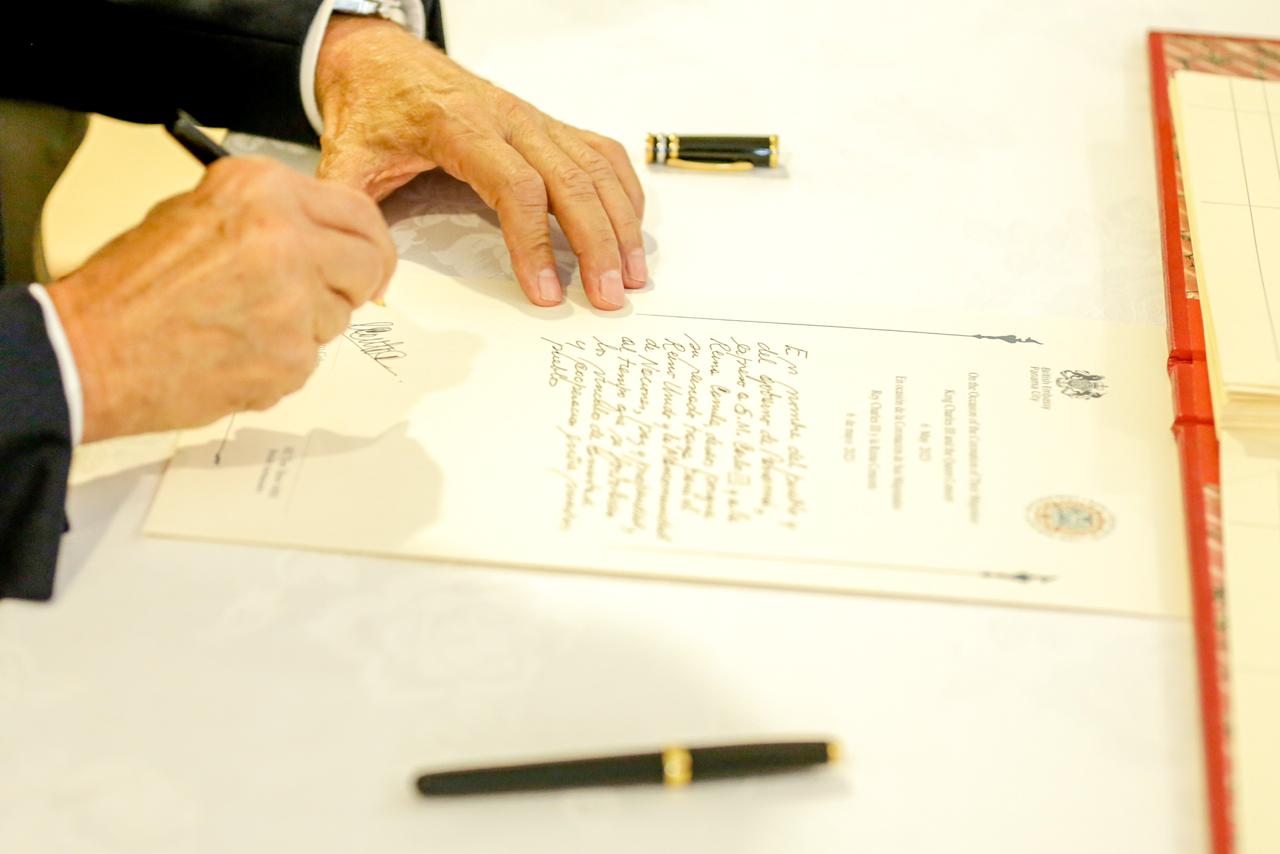 British Embassy
Panama City
On the Occasion of the Coronation of Their Majesties
King Charles III and the Queen Consort
6 May 2023
En ocasión de la Coronación de Sus Majestades
Rey Charles III y la Reina Consorte
6 de mayo 2023
En nombre del pueblo y
del gobierno de Panamá,
expreso a S.M. Carlos III y a la
Reina Camila, deseo porque
su reinado traiga para el
Reino Unido y la Mancomunidad
de Naciones, paz y prosperidad y
al tiempo que se fortalecen
los vínculos de
y cooperación
pueblo